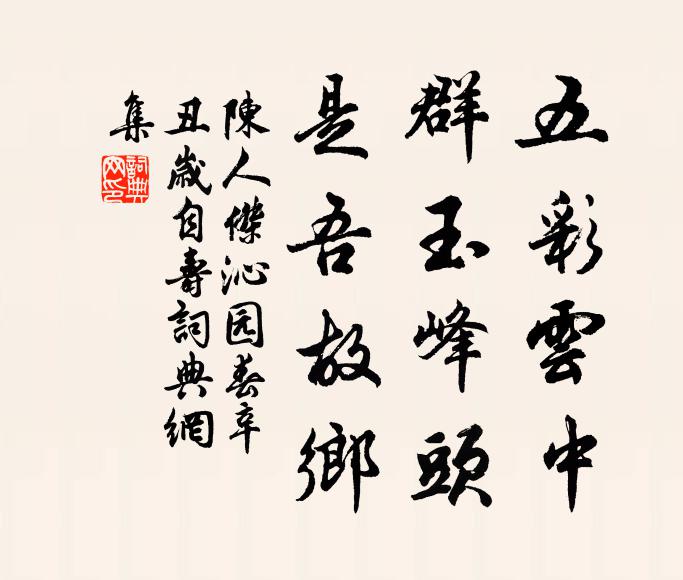 五彩雲中
群玉峰頭
是吾故鄉
陳人傑沁园春辛
丑歲自壽詞典網
集
詞典网印